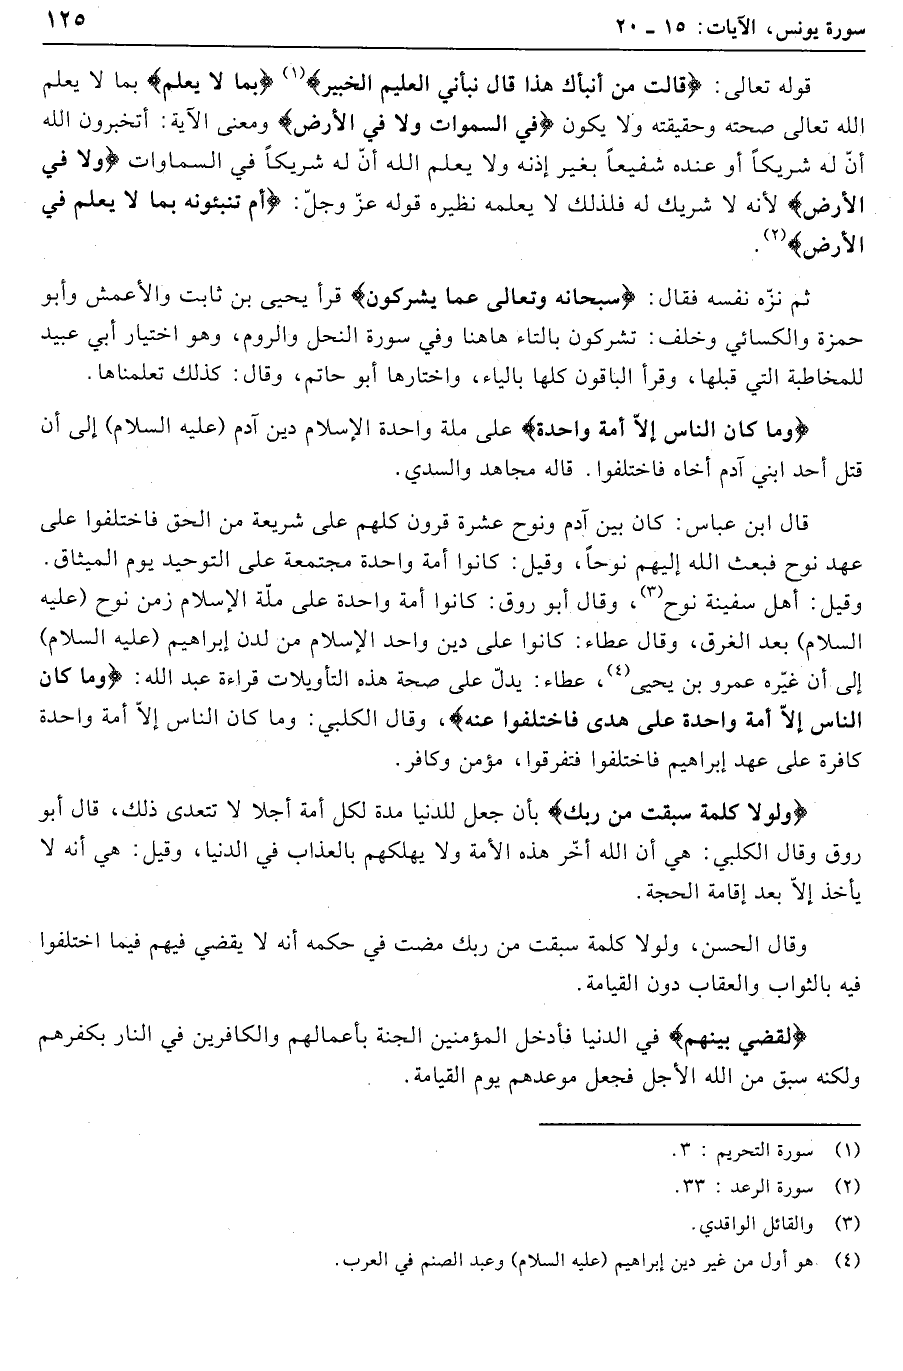 سورة يونس، الآيات: ١٥ ـ ٢٠
١٢٥
قوله تعالى: ﴿قالت من أنبأك هذا قال نبأني العليم الخبير﴾(١) ﴿بما لا يعلم﴾ بما لا يعلم
الله تعالى صحته وحقيقته ولا يكون ﴿في السموات ولا في الأرض﴾ ومعنى الآية: أتخبرون الله
أنّ له شريكاً أو عنده شفيعاً بغير إذنه ولا يعلم الله أنّ له شريكاً في السماوات ﴿ولا في
الأرض﴾ لأنه لا شريك له فلذلك لا يعلمه نظيره قوله عزّ وجلّ: ﴿أم تنبئونه بما لا يعلم في
الأرض﴾(٢).
ثم نزّه نفسه فقال: ﴿سبحانه وتعالى عما يشركون﴾ قرأ يحيى بن ثابت والأعمش وأبو
حمزة والكسائي وخلف: تشركون بالتاء هاهنا وفي سورة النحل والروم، وهو اختيار أبي عبيد
للمخاطبة التي قبلها، وقرأ الباقون كلها بالياء، واختارها أبو حاتم، وقال: كذلك تعلمناها.
﴿وما كان الناس إلاّ أمة واحدة﴾ على ملة واحدة الإسلام دين آدم (عليه السلام) إلى أن
قتل أحد ابني آدم أخاه فاختلفوا. قاله مجاهد والسدي.
قال ابن عباس: كان بين آدم ونوح عشرة قرون كلهم على شريعة من الحق فاختلفوا على
عهد نوح فبعث الله إليهم نوحاً، وقيل: كانوا أمة واحدة مجتمعة على التوحيد يوم الميثاق.
وقيل: أهل سفينة نوح(٣)، وقال أبو روق: كانوا أمة واحدة على ملّة الإسلام زمن نوح (عليه
السلام) بعد الغرق، وقال عطاء: كانوا على دين واحد الإسلام من لدن إبراهيم (عليه السلام)
إلى أن غيّره عمرو بن يحيى(٤)، عطاء: يدلّ على صحة هذه التأويلات قراءة عبد الله: ﴿وما كان
الناس إلاّ أمة واحدة على هدى فاختلفوا عنه﴾، وقال الكلبي: وما كان الناس إلاّ أمة واحدة
كافرة على عهد إبراهيم فاختلفوا فتفرقوا، مؤمن وكافر.
﴿ولولا كلمة سبقت من ربك﴾ بأن جعل للدنيا مدة لكل أمة أجلا لا تتعدى ذلك، قال أبو
روق وقال الكلبي: هي أن الله أخّر هذه الأمة ولا يهلكهم بالعذاب في الدنيا، وقيل: هي أنه لا
يأخذ إلاّ بعد إقامة الحجة.
وقال الحسن، ولولا كلمة سبقت من ربك مضت في حكمه أنه لا يقضي فيهم فيما اختلفوا
فيه بالثواب والعقاب دون القيامة.
﴿لقضي بينهم﴾ في الدنيا فأدخل المؤمنين الجنة بأعمالهم والكافرين في النار بكفرهم
ولكنه سبق من الله الأجل فجعل موعدهم يوم القيامة.
(١) سورة التحريم : ٣.
(٢) سورة الرعد : ٣٣.
(٣) والقائل الواقدي.
(٤) هو أول من غير دين إبراهيم (عليه السلام) وعبد الصنم في العرب.